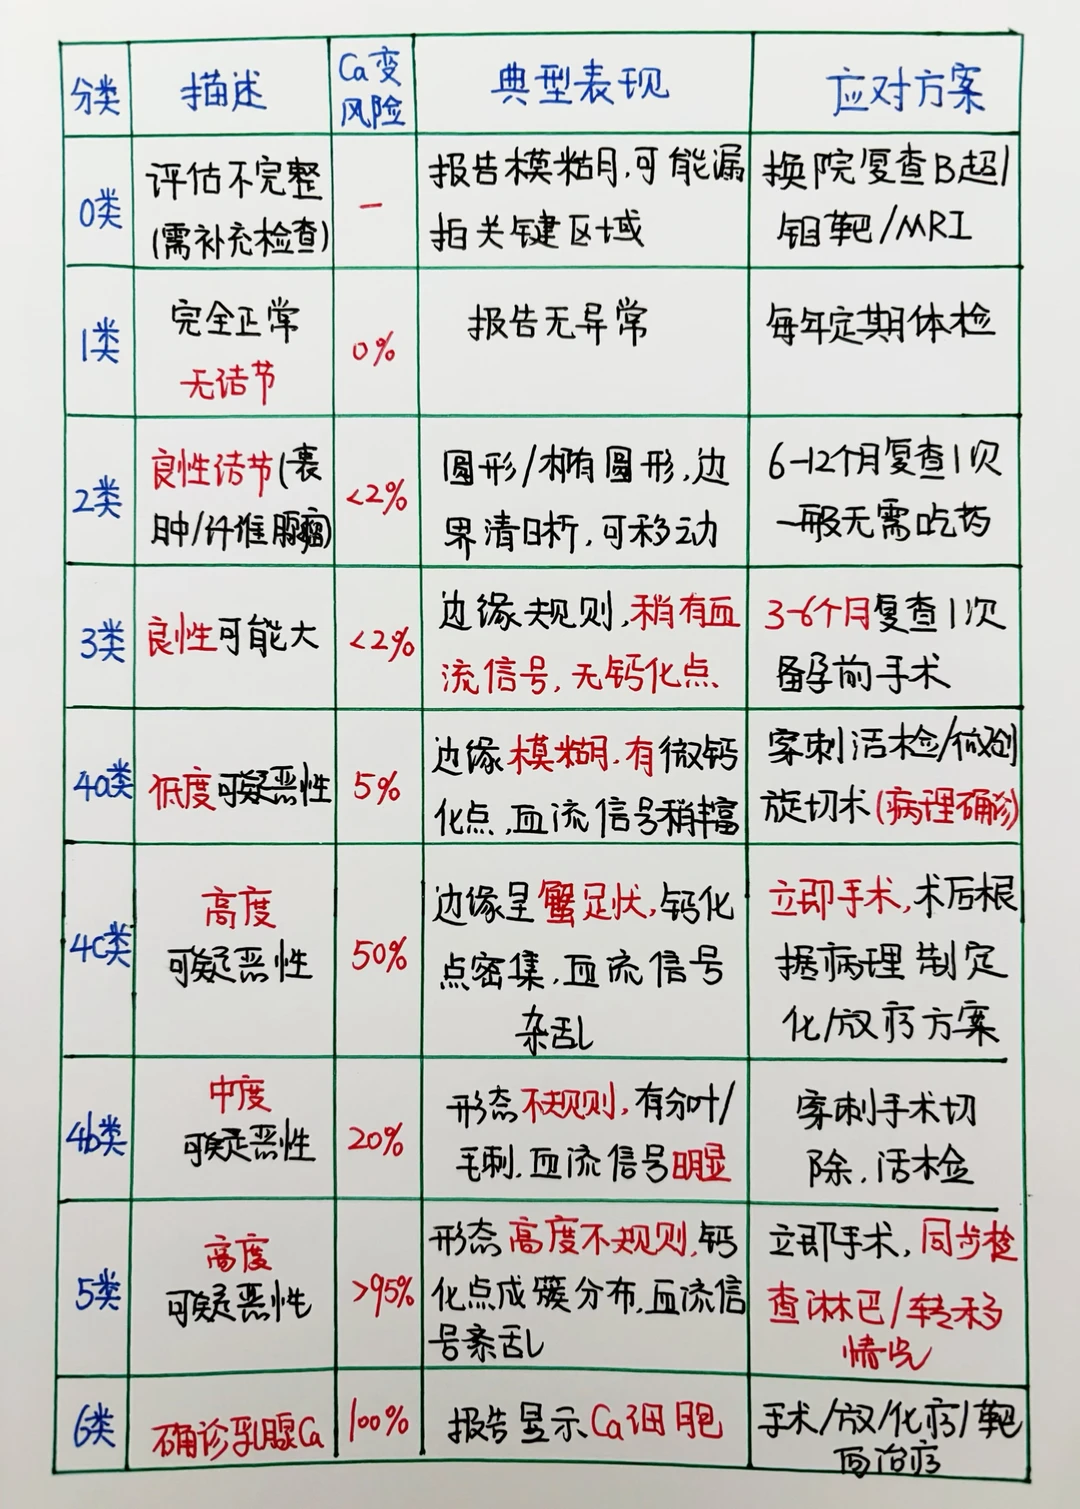 分类 描述 Ca变风险 典型表现 应对方案
0类
评估不完整
(需补充检查)
—
报告模糊,可能漏
拍关键区域
换院复查B超/
钼靶/MRI
1类
完全正常
无结节
0%
报告无异常
每年定期体检
2类
良性结节(囊
肿/纤维腺瘤)
<2%
圆形/椭圆形,边
界清晰,可移动
6-12个月复查1次
一般无需吃药
3类
良性可能大
<2%
边缘规则,稍有血
流信号,无钙化点
3-6个月复查1次
备孕前手术
4a类
低度可疑恶性
5%
边缘模糊,有微钙
化点,血流信号稍丰富
穿刺活检/微创
旋切术(病理确诊)
4c类
高度
可疑恶性
50%
边缘呈蟹足状,钙化
点密集,血流信号
杂乱
立即手术,术后根
据病理制定
化/放疗方案
4b类
中度
可疑恶性
20%
形态不规则,有分叶/
毛刺,血流信号明显
穿刺手术切
除,活检
5类
高度
可疑恶性
>95%
形态高度不规则,钙
化点成簇分布,血流信
号紊乱
立即手术,同步检
查淋巴/转移
情况
6类
确诊乳腺Ca
100%
报告显示Ca细胞
手术/放/化疗/靶
向治疗